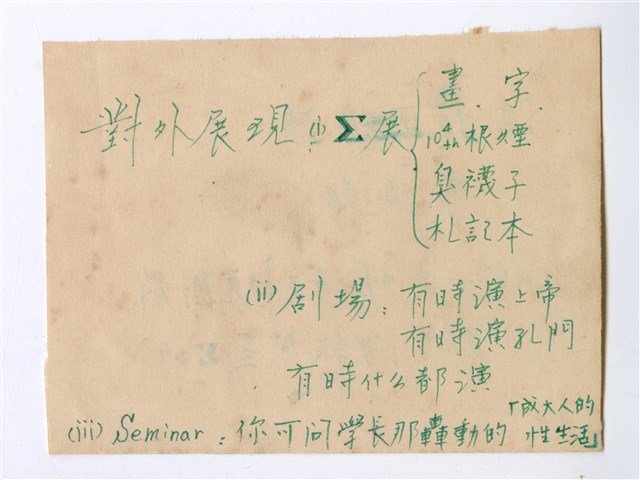 畫．字．
對外展現 (i) Σ展
10⁴th 根煙
臭襪子
札記本
(ii) 剧場：有時演上帝
有時演孔門
有時什么都演
「成大人的
(iii) Seminar：你可問學長那轟動的 性生活」